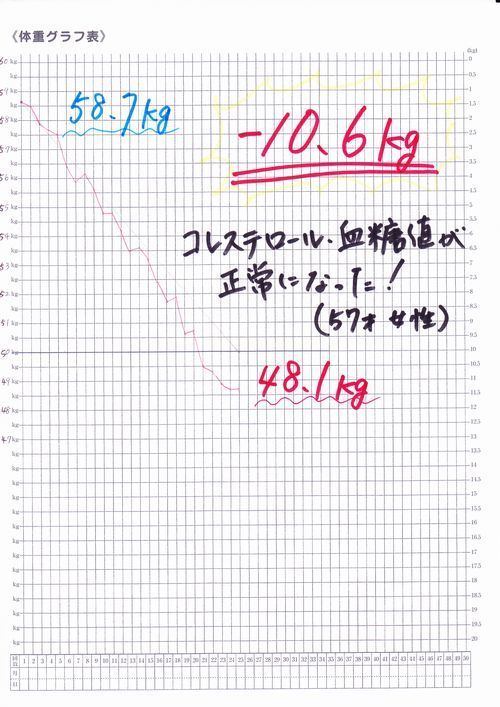 《体重グラフ表》
(kg)
58.7kg
-10.6kg
コレステロール・血糖値が
正常になった!
(57才 女性)
48.1kg
59 kg
58 kg
57 kg
56 kg
55 kg
54 kg
53 kg
52 kg
51 kg
50 kg
49 kg
48 kg
47 kg
0
0.5
1
1.5
2
2.5
3
3.5
4
4.5
5
5.5
6
6.5
7
7.5
8
8.5
9
9.5
10
10.5
11
11.5
12
12.5
13
13.5
14
14.5
15
15.5
16
16.5
17
17.5
18
18.5
19
19.5
20
回数 1 2 3 4 5 6 7 8 9 10 11 12 13 14 15 16 17 18 19 20 21 22 23 24 25 26 27 28 29 30 31 32 33 34 35 36 37 38 39 40 41 42 43 44 45 46 47 48 49 50
月
日